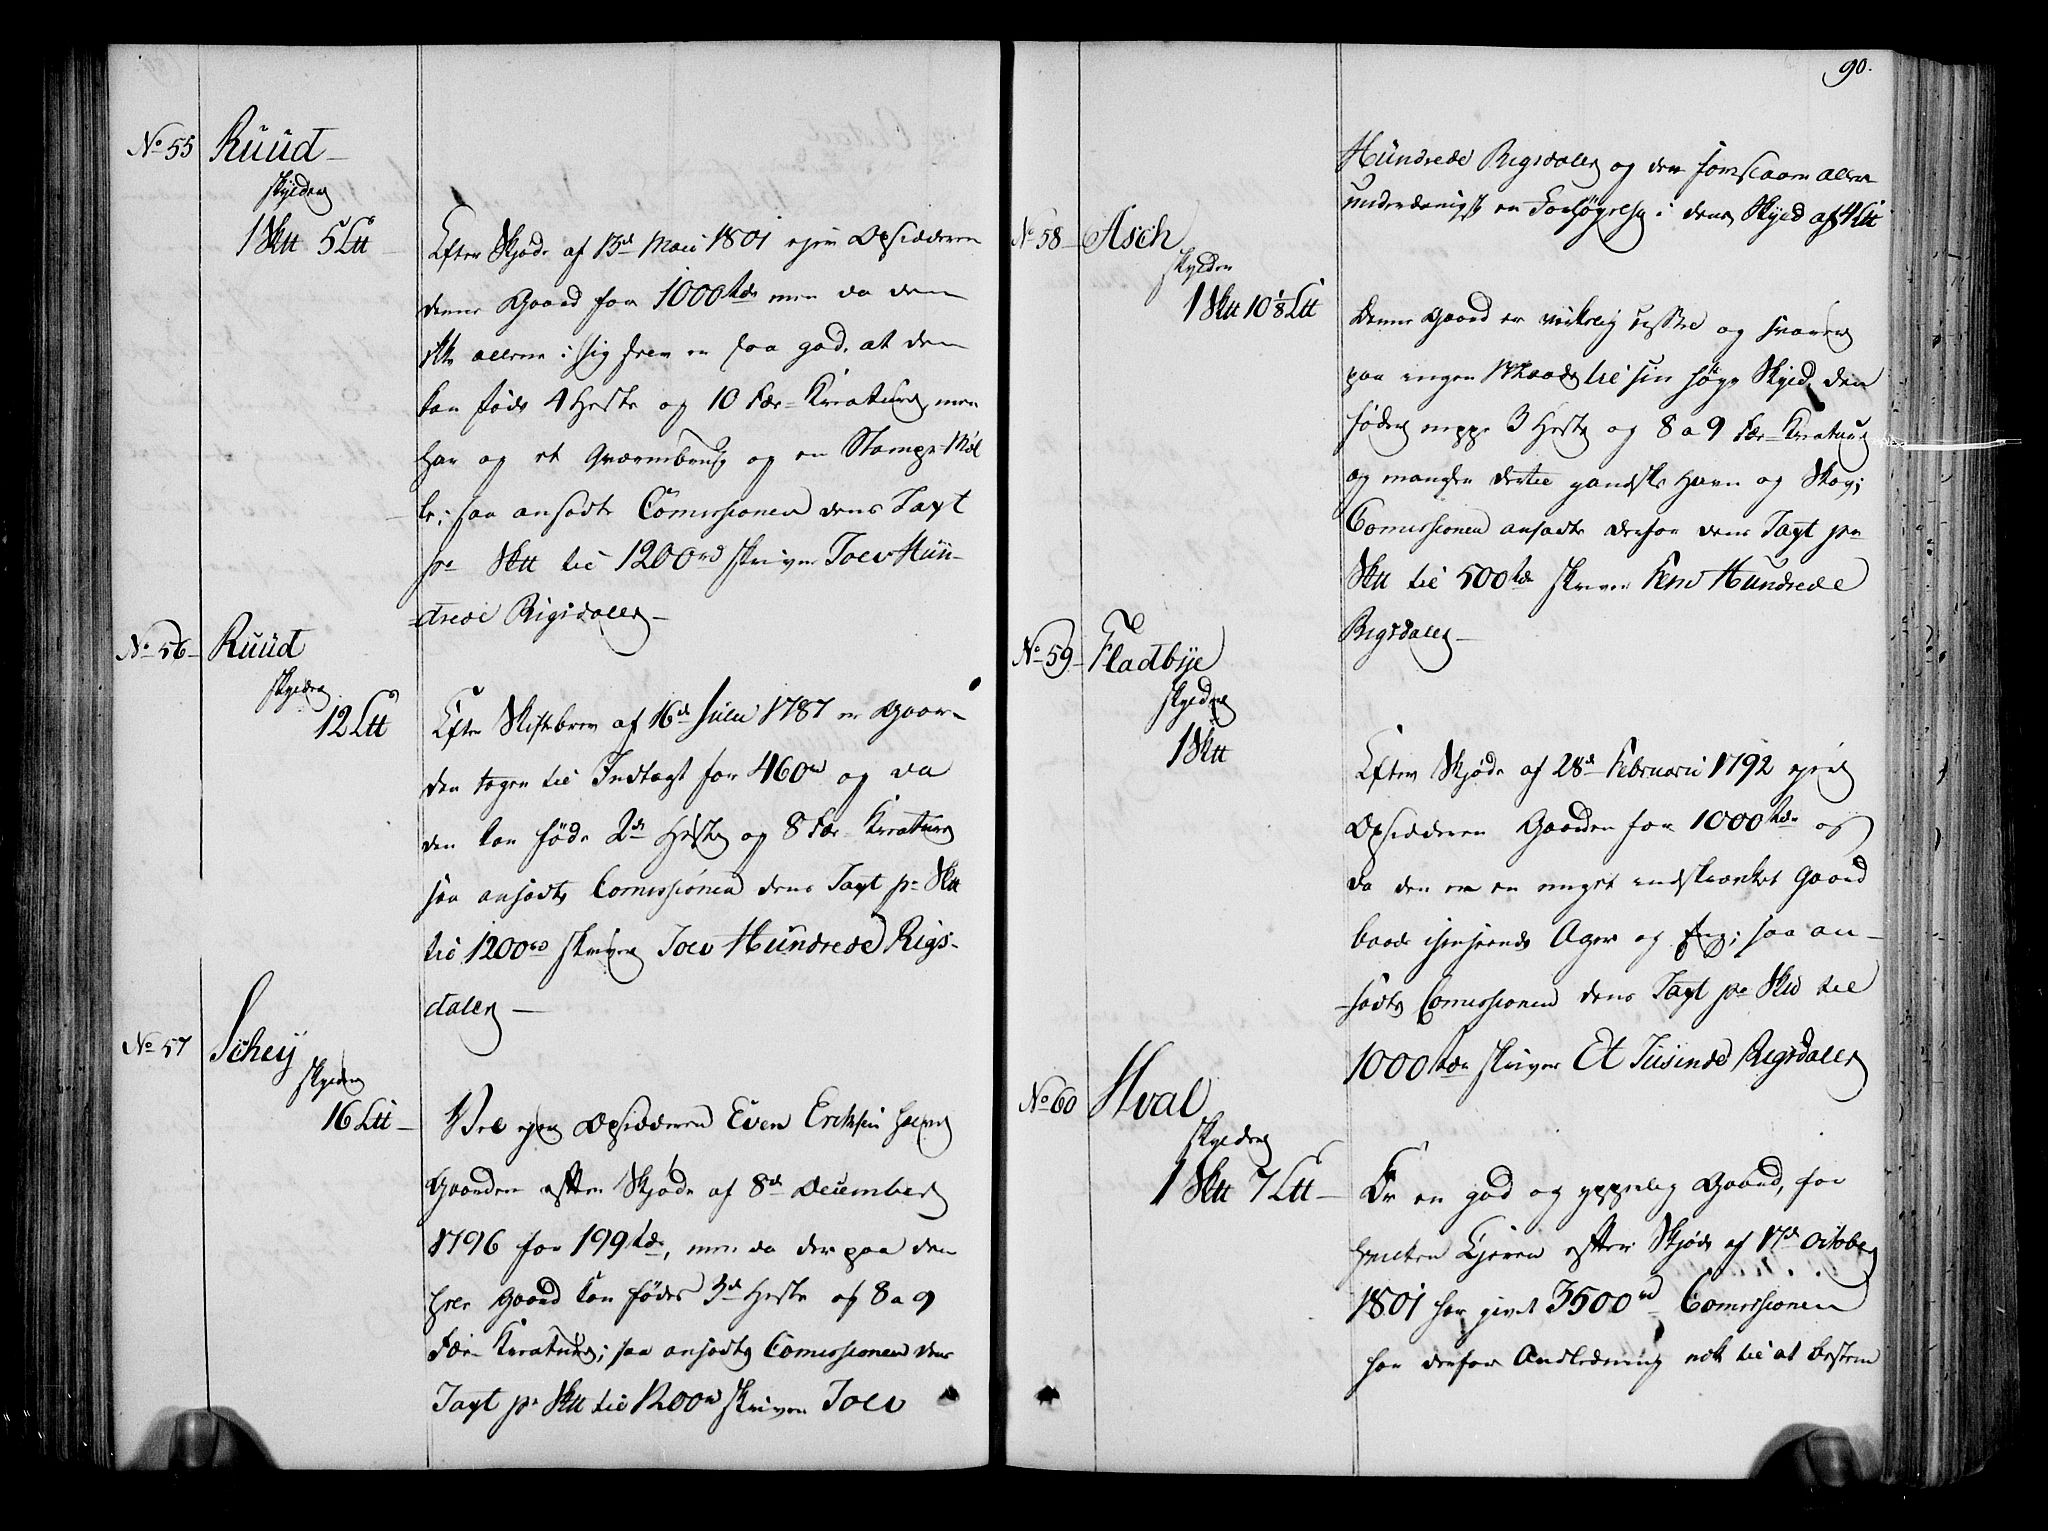 No 55 Ruud
skylder
1 Sktt 5 Ltt
Efter Skjøde af 13de Maii 1801 ejer Opsidderen
denne Gaard for 1000 rdr men da den
ikke allene i sig selv er saa god, at den
kan føde 4 Heste og 10 Fæ-Kreature, men
har og et og en Stampe-Møl
le; saa ansadte Comissionen dens Taxt
pr Sktt til 1200 rd skriver Tolv Hun-
drede Rigsdaler
No 56 Ruud
skylder
12 Ltt
Efter Skiftebrev af 16de Julii 1787 er Gaar-
den tagen til Indtægt for 460 rd og da
den kan føde 2de Heste og 8 Fæ-Kreature
saa ansadte Comissionen dens Taxt pr Sktt
til 1200 rd skriver Tolv Hundrede Rigs-
daler
No 57 Schey
skylder
16 Ltt
Vel ejer Opsidderen Even Erichsen halve
Gaarden efter Skjøde af 8de December
1796 for 199 rdr, men da der paa den
hele Gaard kan fødes 3de Heste og 8 a 9
Fæ-Kreature; saa ansadte Comissionen dens
Taxt pr Sktt til 1200 rd skriver Tolv
90.
Hundrede Rigsdaler og den allene
underdanigst en Forhøyelse i dens Skyld af 4 Ltt
No 58 Asch
skylder
1 Sktt 10 1/8 Ltt
Denne Gaard er virkelig og svarer
paa ingen Maade til sin høye Skyld, den
føder neppe 3 Heste og 8 a 9 Fæ-Kreature
og mangler dertil gandske Havn og Skov;
Comissionen ansadte derfor dens Taxt pr
Sktt til 500 rdr skriver Fem Hundrede
Rigsdaler
No 59 Fladbye
skylder
1 Sktt
Efter Skjøde af 28de Februarii 1792 ejer
Opsidderen Gaarden for 1000 rdr og
da den er en meget indskrænket Gaard
baade henseende Ager og Eng; saa an-
sadte Comissionen dens Taxt pr Sktt til
1000 rdr skriver Et Tusinde Rigsdaler
No 60 Hval
skylder
1 Sktt 7 Ltt
Er en god og ypperlig Gaard, for
hvilken Ejeren efter Skjøde af 17de October
1801 har givet 3500 rd Comissionen
har derfor Andledning nok til at bestem